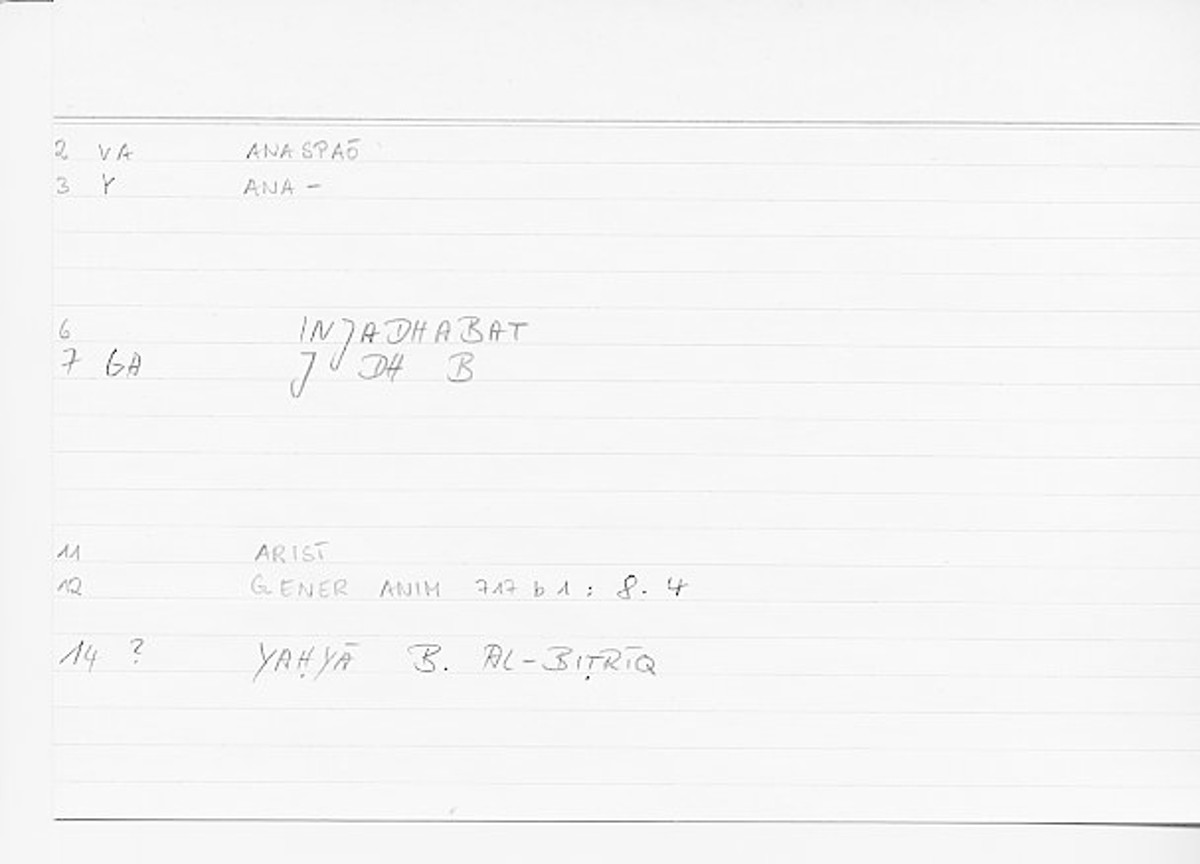 2 VA ANASPAŌ
3 Y ANA-
6 INJADHABAT
7 GA J DH B
11 ARIST
12 GENER ANIM 717 b 1 : 8. 4
14 ? YAḤYĀ B. AL-BIṬRĪQ